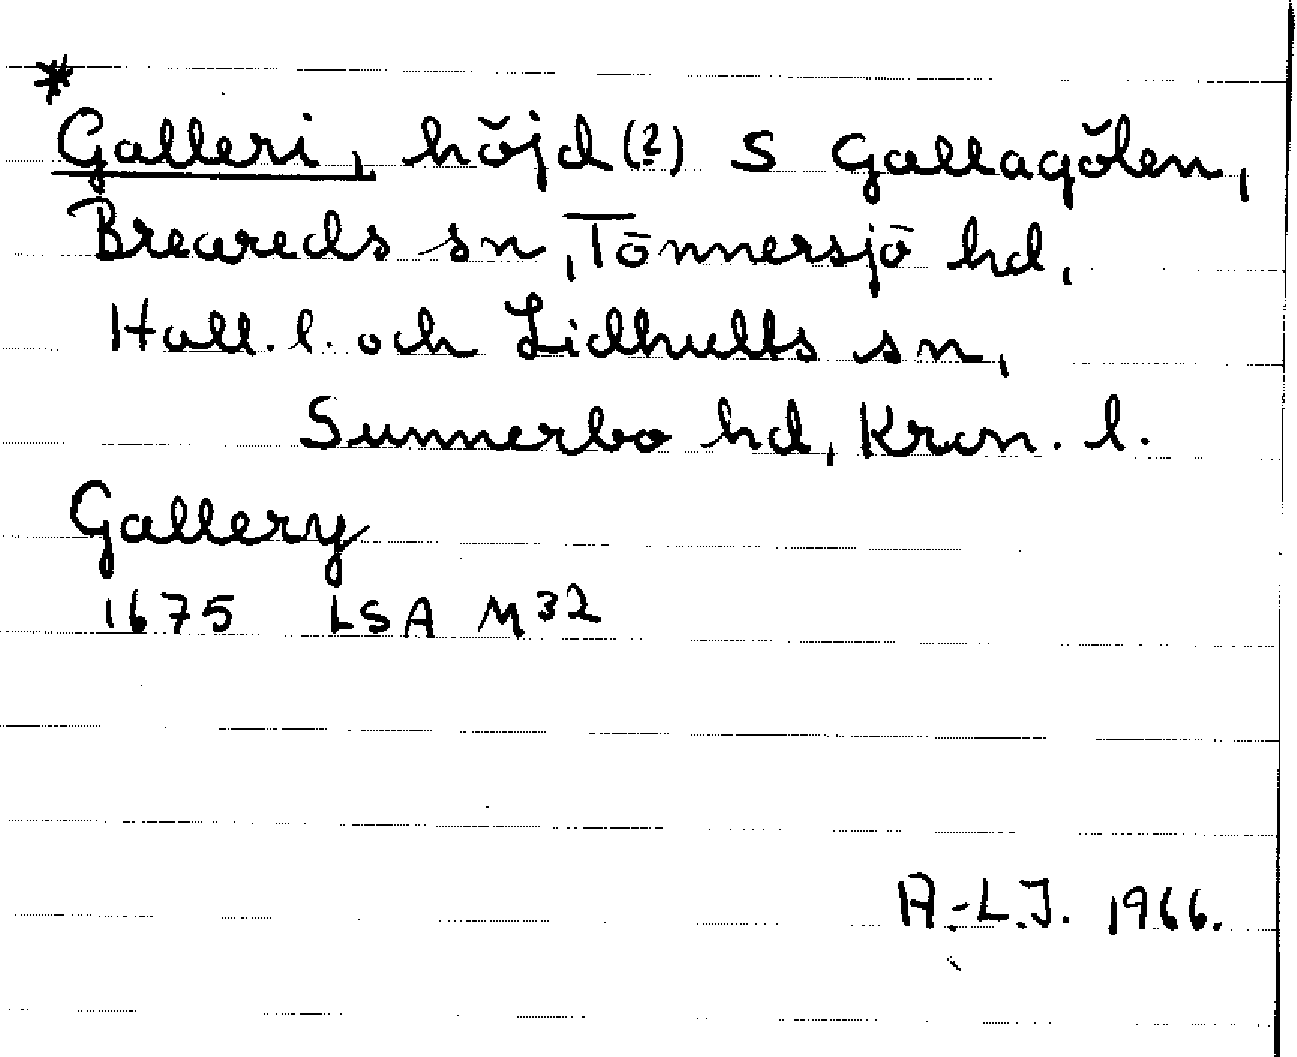 *
Galleri, höjd(?) S Gallagölen,
Breareds sn, Tönnersjö hd,
Hall. l. och Lidhults sn,
Sunnerbo hd, Kron. l.
Gallery
1675 LSA M32
A.-L.J. 1966.